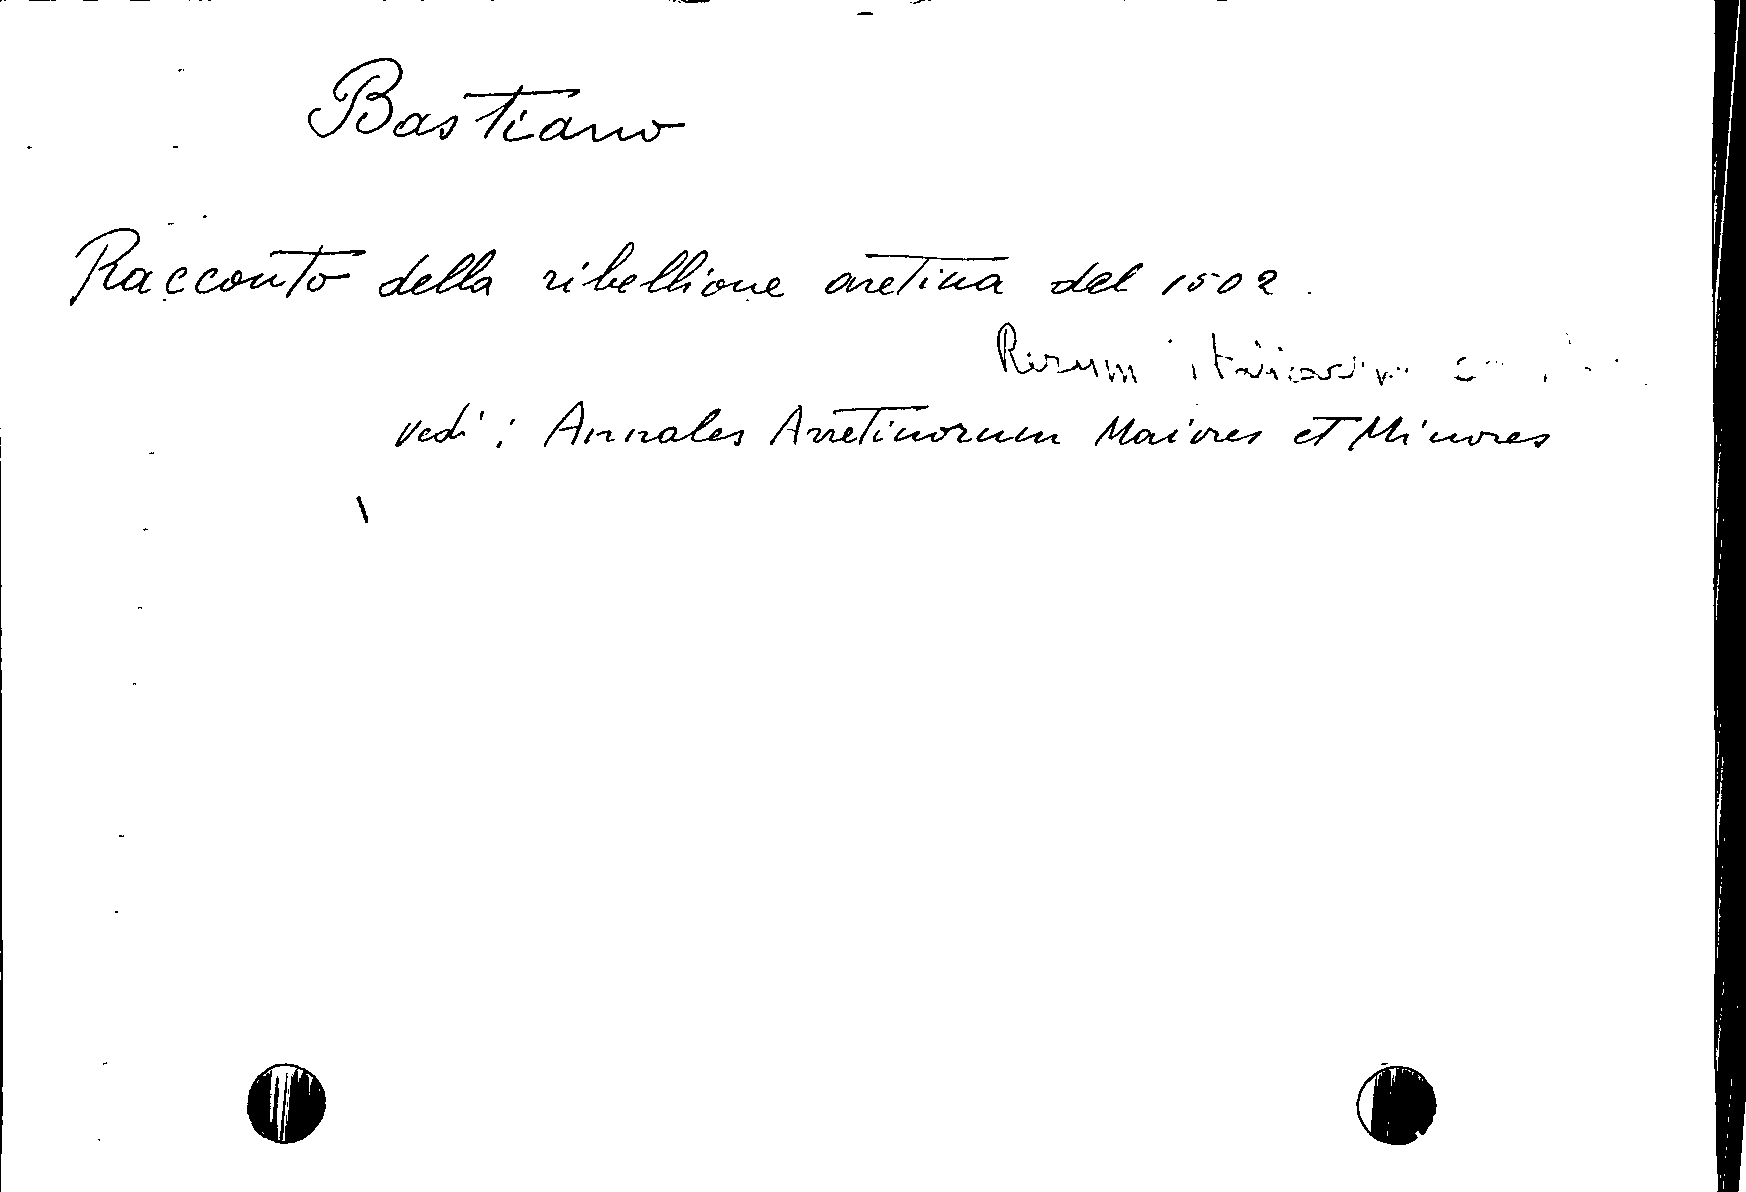 Bastiano
Racconto della ribellione aretina del 1502.
Rerum italicarum
vedi: Annales Arretinorum Maiores et Minores